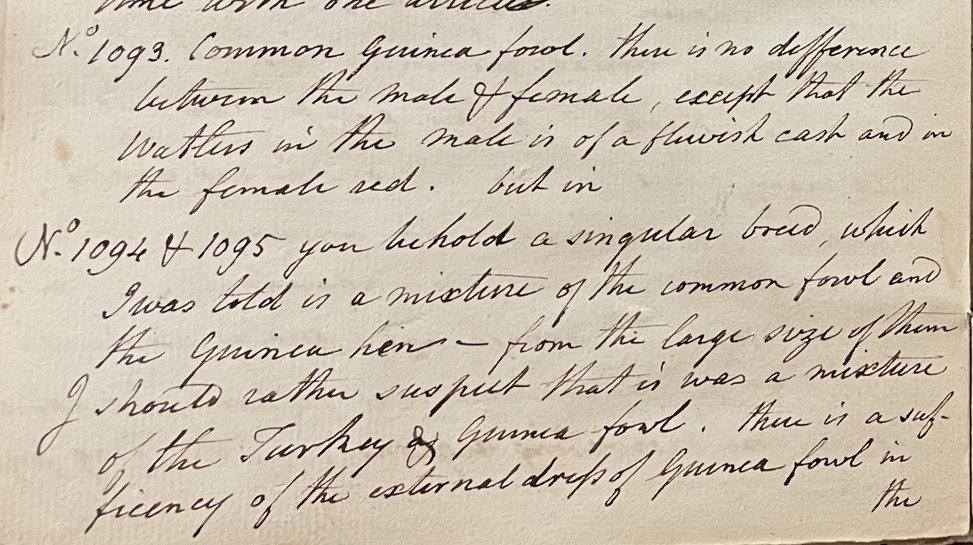 time with one articles.
No. 1093. Common Guinea fowl. there is no difference
between the male & female, except that the
Wattles in the male is of a fluish cast and in
the female red. but in
No. 1094 & 1095 you behold a singular breed, which
I was told is a mixture of the common fowl and
the Guinea hens - from the large size of them
I should rather suspect that is was a mixture
of the Turkey & Guinea fowl. there is a suf-
ficency of the external dress of Guinea fowl in
the